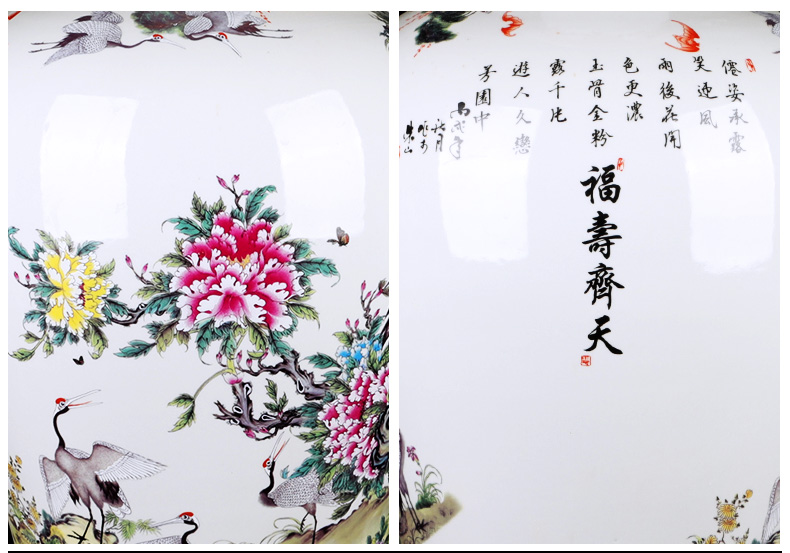 僊姿承露
笑迎風
雨後花開
色更濃
玉骨金粉
露千坨
遊人久戀
芳園中
福壽齊天